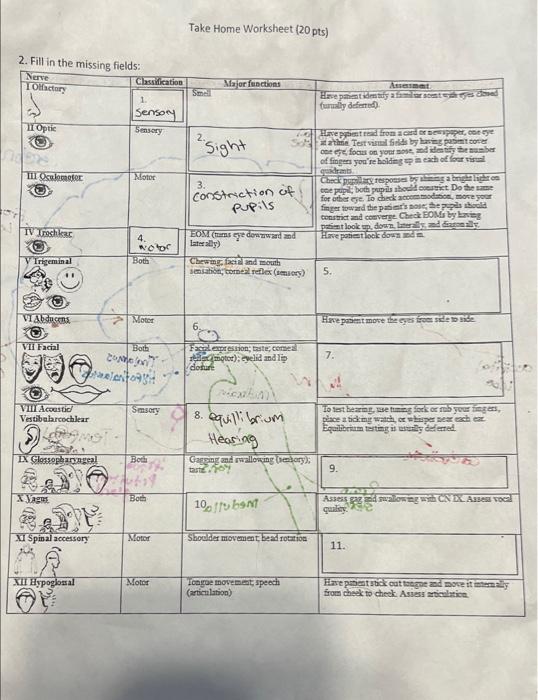 Take Home Worksheet (20 pts)
2. Fill in the missing fields:
Nerve
Classification
Major functions
Assessment
I Olfactory
1.
Sensory
Smell
Have patient identify a familiar scent with eyes closed
(usually deferred).
II Optic
Sensory
2.
Sight
Have patient read from a card or newspaper, one eye
at a time. Test visual fields by having patient cover
one eye, focus on your nose, and identify the number
of fingers you're holding up in each of four visual
quadrants.
III Oculomotor
Motor
3.
constriction of
Pupils
Check pupillary responses by shining a bright light on
one pupil; both pupils should constrict. Do the same
for other eye. To check accommodation, move your
finger toward the patient's nose; the pupils should
constrict and converge. Check EOMs by having
patient look up, down, laterally, and diagonally.
IV Trochlear
4.
Motor
EOM (turns eye downward and
laterally)
Have patient look down and in.
V Trigeminal
Both
Chewing; facial and mouth
sensation; corneal reflex (sensory)
5.
VI Abducens
Motor
6.
Have patient move the eyes from side to side.
VII Facial
Both
Facial expression; taste; corneal
reflex (motor); eyelid and lip
closure
7.
VIII Acoustic/
Vestibularcochlear
Sensory
8. equillibrium
Hearing
To test hearing, use tuning fork or rub your fingers,
place a ticking watch, or whisper near each ear.
Equilibrium testing is usually deferred.
IX Glossopharyngeal
Both
Gagging and swallowing (sensory);
taste
9.
X Vagus
Both
10.
Assess gag and swallowing with CN IX. Assess vocal
quality.
XI Spinal accessory
Motor
Shoulder movement; head rotation
11.
XII Hypoglossal
Motor
Tongue movement; speech
(articulation)
Have patient stick out tongue and move it internally
from cheek to cheek. Assess articulation.